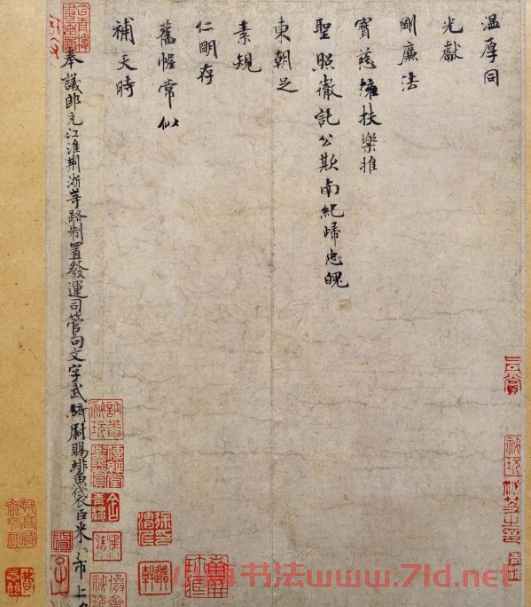 溫厚同
光獻
剛廉法
寶慈擁扶樂推
聖照徹託公欺南紀歸忠魄
東朝足
素規
仁明存
舊幄常似
補天時
奉議郎充江淮荊浙等路制置發運司管句文字武騎尉賜緋魚袋臣米芾上
书法www.7ld.net